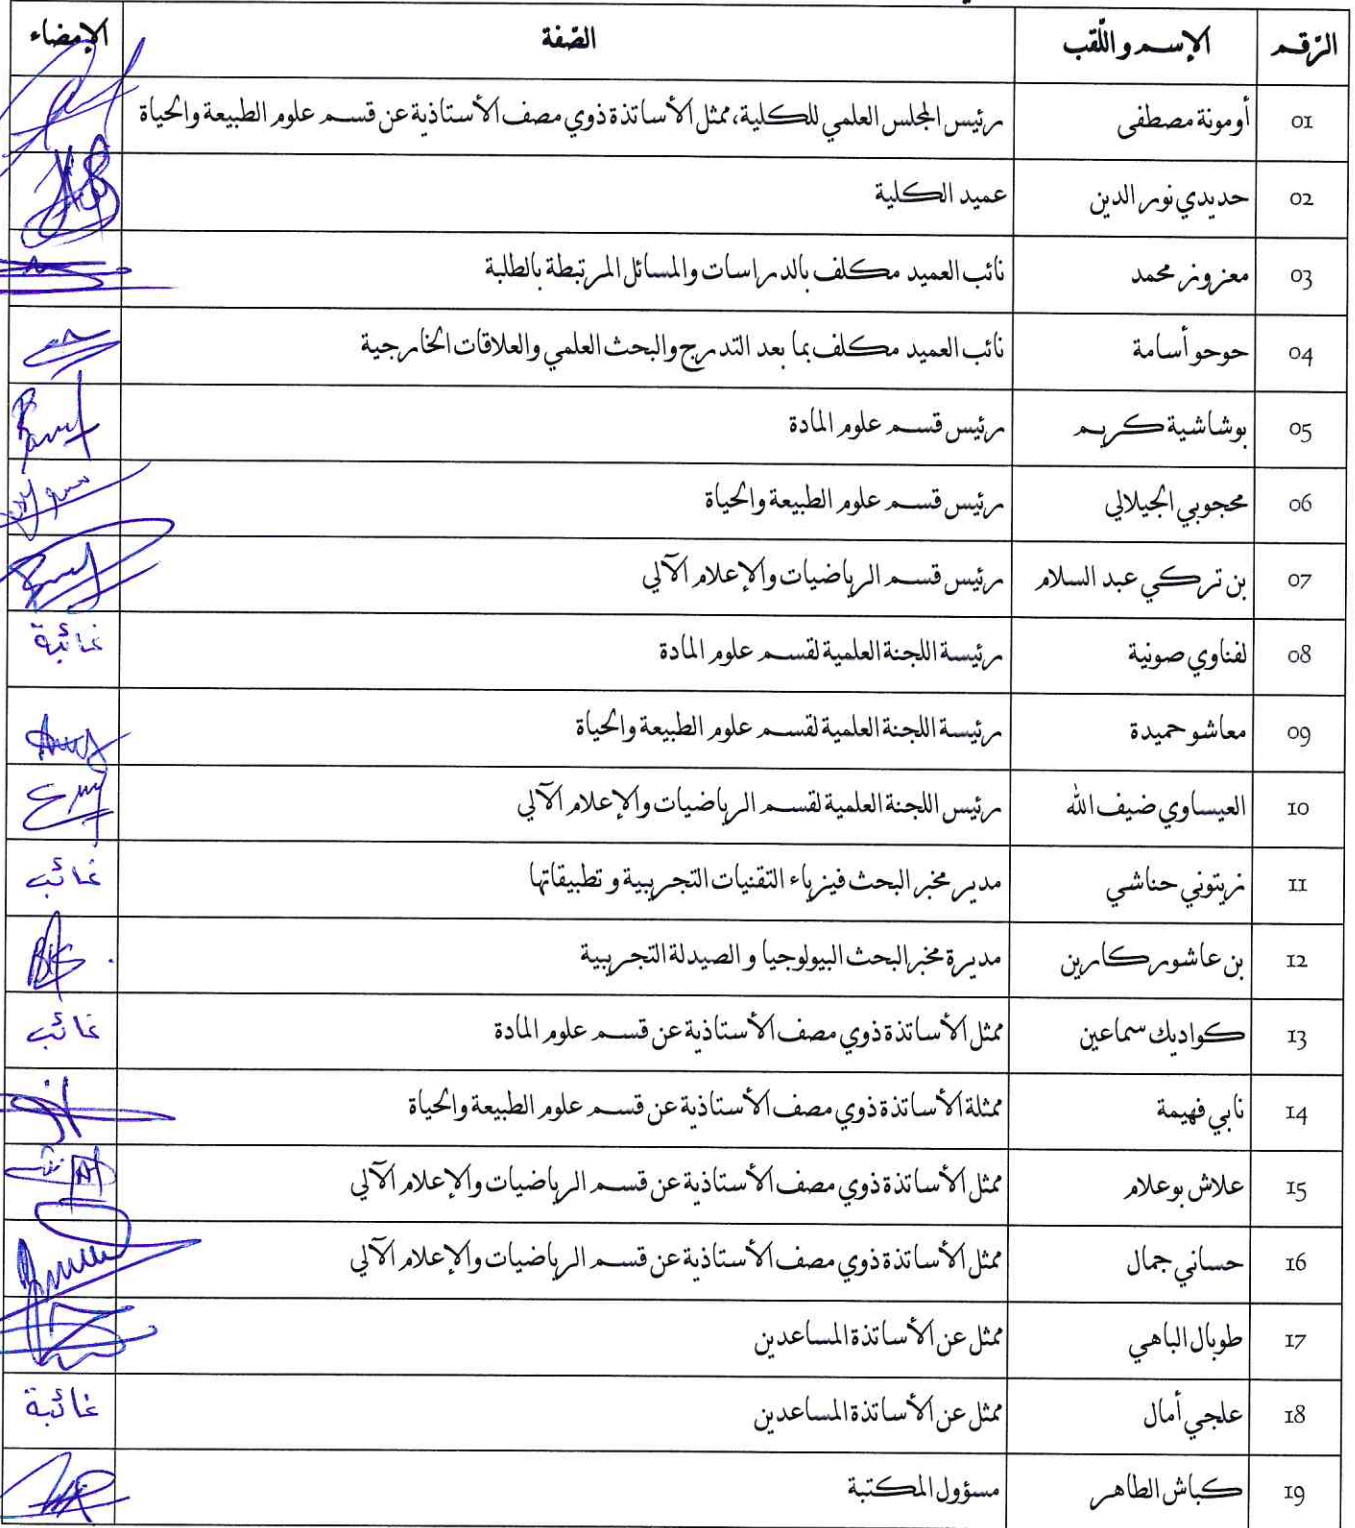 الرّقم الإسم واللّقب الصّفة الإمضاء
01 أومونة مصطفى رئيس المجلس العلمي للكلية، ممثل الأساتذة ذوي مصف الأستاذية عن قسم علوم الطبيعة والحياة
02 حديدي نور الدين عميد الكلية
03 معزوز محمد نائب العميد مكلف بالدراسات والمسائل المرتبطة بالطلبة
04 حوحو أسامة نائب العميد مكلف بما بعد التدرج والبحث العلمي والعلاقات الخارجية
05 بوشاشية كريم رئيس قسم علوم المادة
06 محجوبي الجيلالي رئيس قسم علوم الطبيعة والحياة
07 بن تركي عبد السلام رئيس قسم الرياضيات والإعلام الآلي
08 لفناوي صونية رئيسة اللجنة العلمية لقسم علوم المادة غائبة
09 معاشو حميدة رئيسة اللجنة العلمية لقسم علوم الطبيعة والحياة
10 العيساوي ضيف الله رئيس اللجنة العلمية لقسم الرياضيات والإعلام الآلي
11 زيتوني حناشي مدير مخبر البحث فيزياء التقنيات التجريبية و تطبيقاتها غائب
12 بن عاشور كارين مديرة مخبر البحث البيولوجيا و الصيدلة التجريبية
13 كواديك سماعين ممثل الأساتذة ذوي مصف الأستاذية عن قسم علوم المادة غائب
14 نابي فهيمة ممثلة الأساتذة ذوي مصف الأستاذية عن قسم علوم الطبيعة والحياة
15 علاش بوعلام ممثل الأساتذة ذوي مصف الأستاذية عن قسم الرياضيات والإعلام الآلي
16 حساني جمال ممثل الأساتذة ذوي مصف الأستاذية عن قسم الرياضيات والإعلام الآلي
17 طوبال الباهي ممثل عن الأساتذة المساعدين
18 علجي أمال ممثل عن الأساتذة المساعدين غائبة
19 كباش الطاهر مسؤول المكتبة